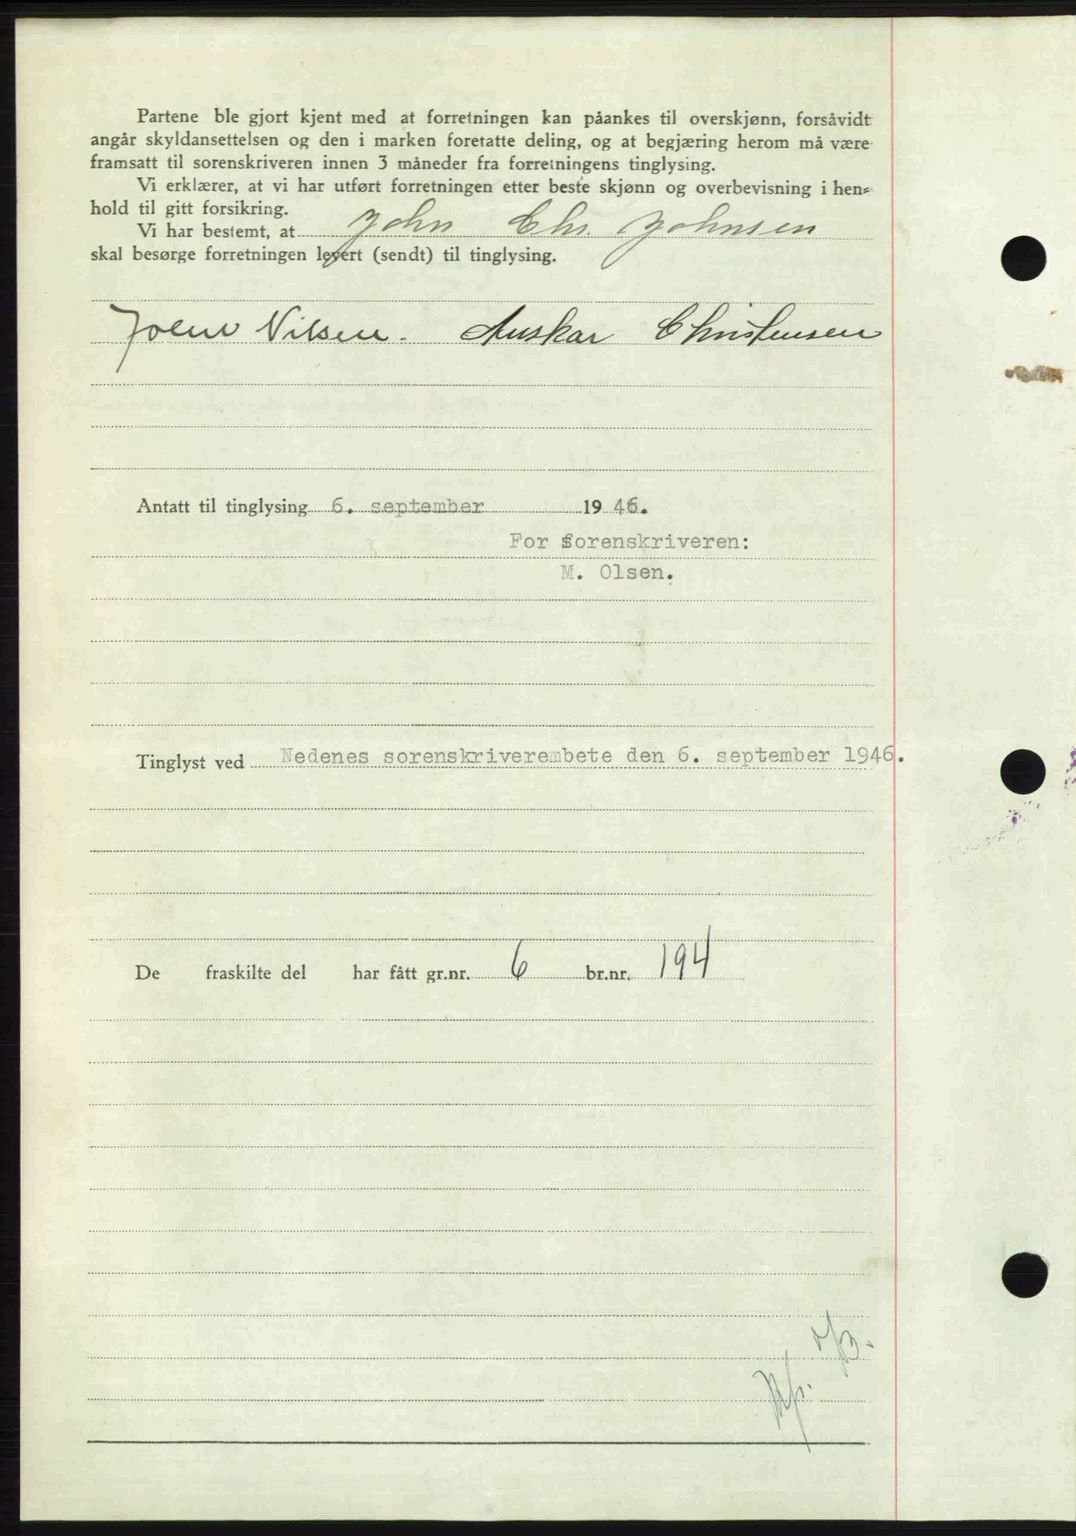 Partene ble gjort kjent med at forretningen kan påankes til overskjønn, forsåvidt
angår skyldansettelsen og den i marken foretatte deling, og at begjæring herom må være
framsatt til sorenskriveren innen 3 måneder fra forretningens tinglysing.
Vi erklærer, at vi har utført forretningen etter beste skjønn og overbevisning i hen=
hold til gitt forsikring.
Vi har bestemt, at John Chr. Johnsen
skal besørge forretningen levert (sendt) til tinglysing.
Nilsen. Anskar Christensen
Antatt til tinglysing 6. september 1946.
For sorenskriveren:
M. Olsen.
Tinglyst ved Nedenes sorenskriverembete den 6. september 1946.
De fraskilte del har fått gr.nr. 6 br.nr. 194